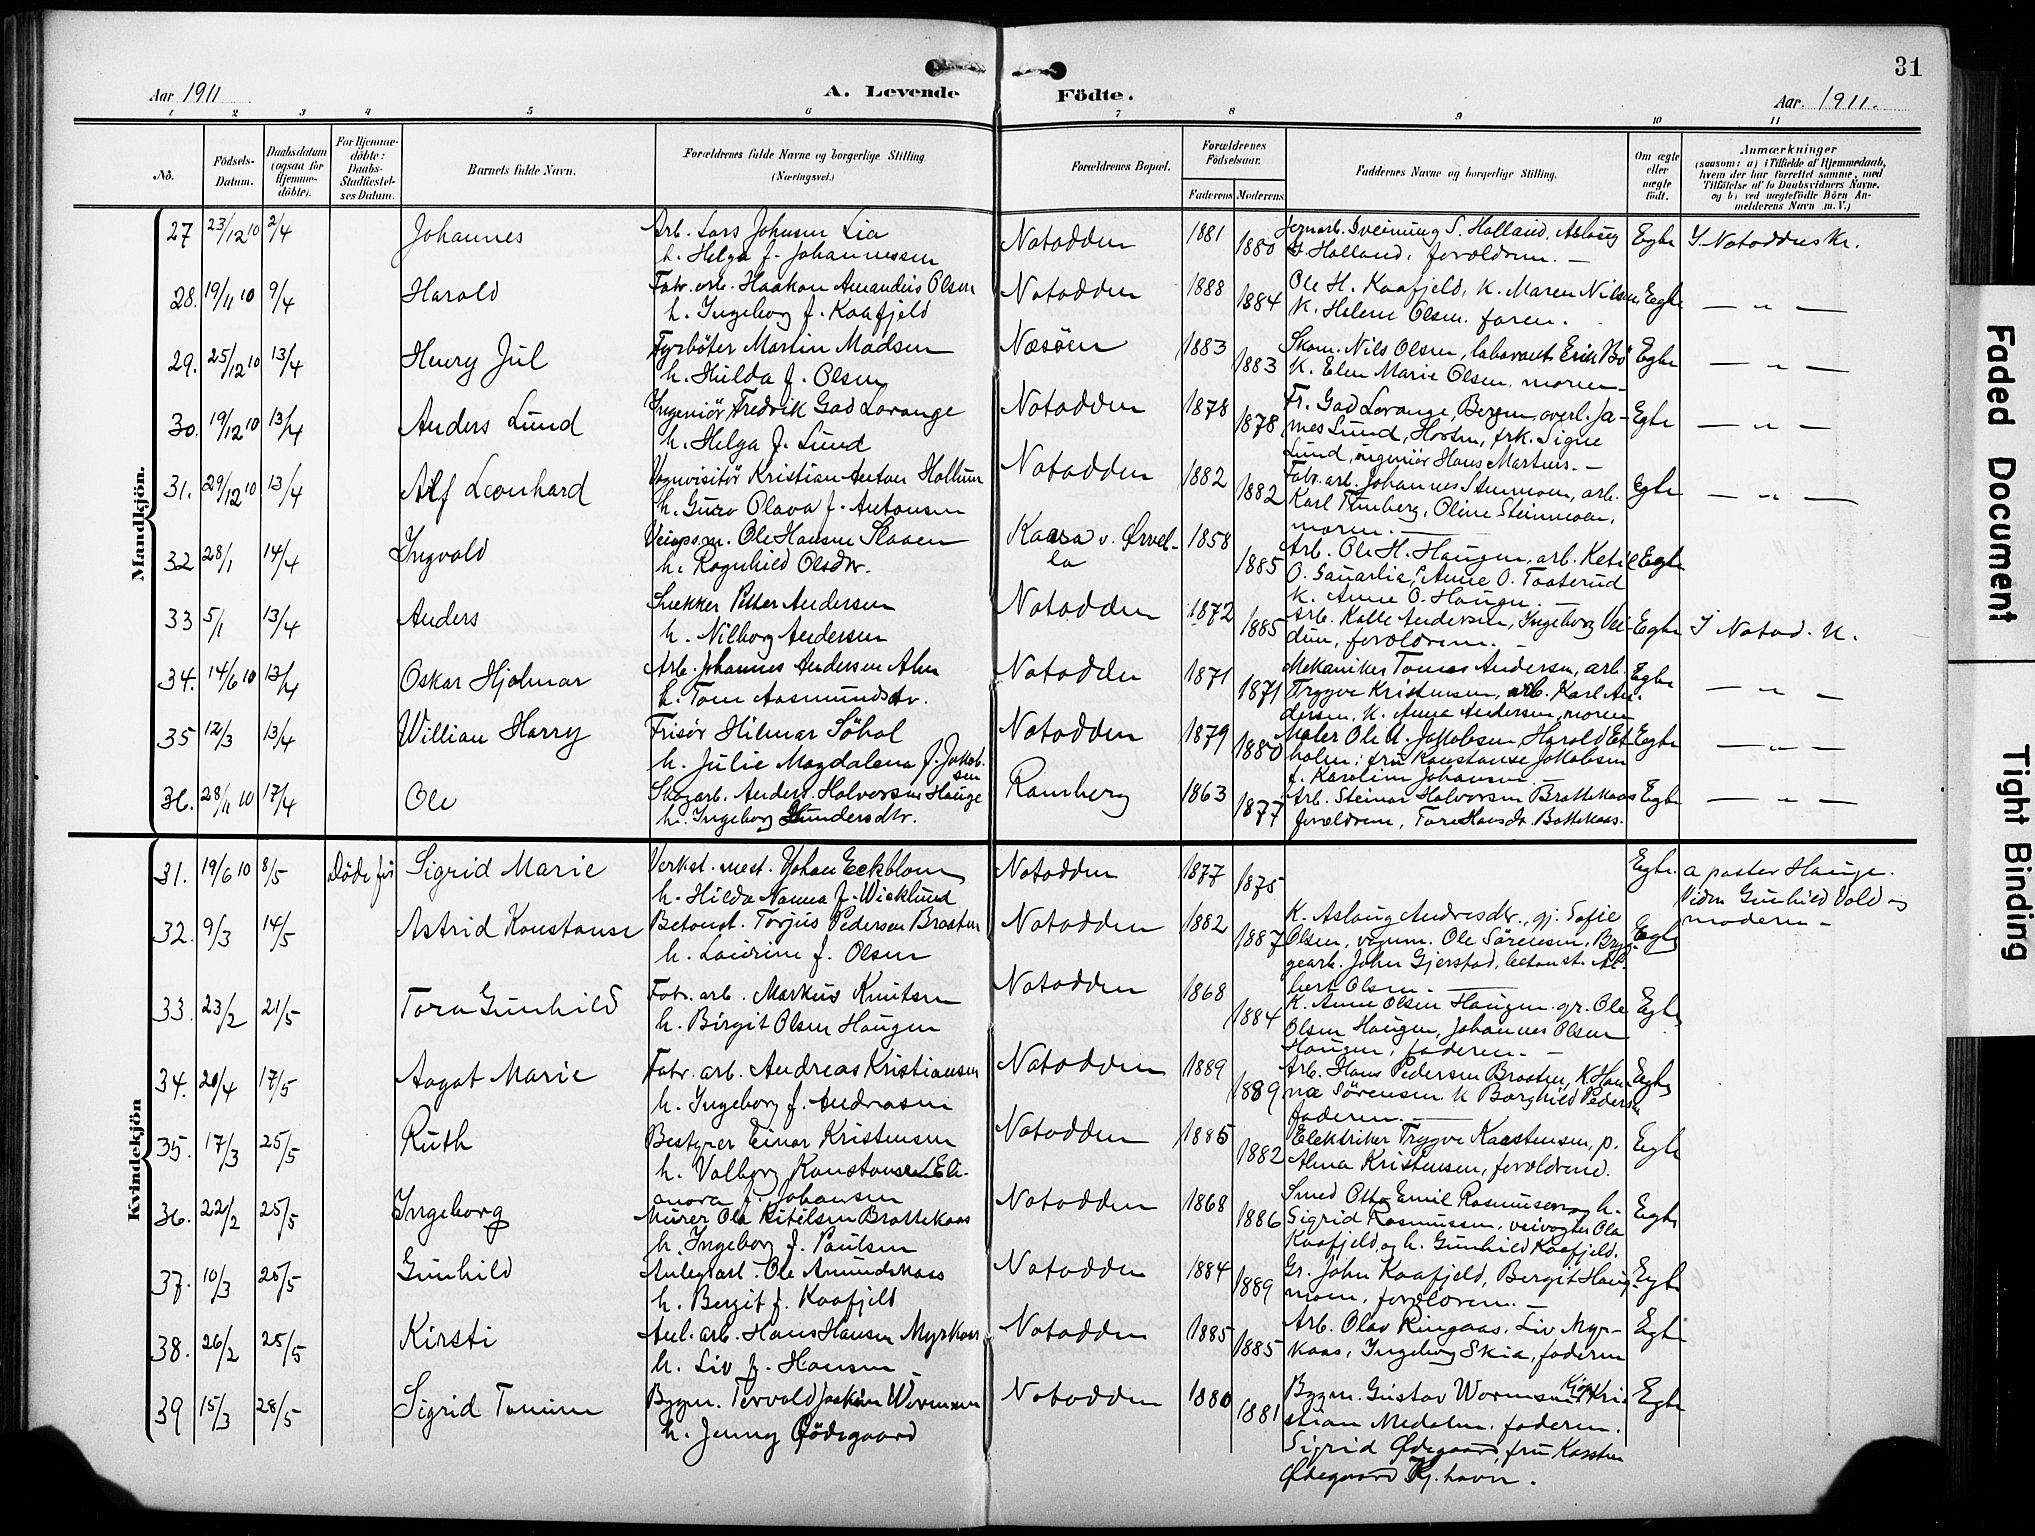 31
Aar 1911
A. Levende
Födte.
Aar. 1911.
1 2 3 4 5 6 7 8 9 10 11
No.
Födsels-
Datum.
Daabsdatum
(ogsaa for
Hjemme-
döbte).
For Hjemme-
döbte:
Daabs-
Stadfæstel-
ses Datum.
Barnets fulde Navn.
Forældrenes fulde Navne og borgerlige Stilling
(Næringsvei.)
Forældrenes Bopæl.
Forældrenes
Födselsaar.
Faderens
Moderens
Faddernes Navne og borgerlige Stilling.
Om ægte
eller
uægte
födt.
Anmærkninger
(saasom: a) i Tilfælde af Hjemmedaab,
hvem der har forrettet samme, med
Tilföielse af to Daabsvidners Navne.
og b) ved uægtefödte Börn An-
melderens Navn m. V.)
Mandkjön.
27 23/12 10 2/4 Johannes Arb. Lars Johnsen Lia
h. Helga f. Johannessen
Notodden 1881 1880
Jernarb. Sveinung S. Holland, Aslaug
G. Holland, forældrene. —
Egte I Notoddens K.
28. 19/11 10 9/4 Harald Fabr. arb. Haakon Amandus Olsen
h. Ingeborg f. Kaafjeld
Notodden 1888 1884
Ole H. Kaafjeld, K. Maren Nilsen
K. Helene Olsen. faren.
Egte — " —
29. 25/12 10 13/4 Henry Jul Fyrböter Martin Madsen
h. Hulda f. Olsen
Næsöen 1883 1883
Skom. Nils Olsen, laborant Erik Bö
K. Elen Marie Olsen, moren —
Egte — " —
30. 19/12 10 13/4 Anders Lund Ingeniör Fredrik Gad Lorange
h. Helga f. Lund
Notodden 1878 1878
Fr. Gad Lorange, Bergen, overl. Ja-
mes Lund, Horten, frk. Signe
Lund, ingeniör Hans Martens. —
Egte — " —
31. 29/12 10 13/4 Alf Leonhard Vognvisitör Kristian Anton Hollum
h. Guro Olava f. Antonsen
Notodden 1882 1882
Fabr. arb. Johannes Stenmoen, arb.
Karl Tinberg, Oline Steinmoen,
moren —
Egte — " —
32 28/1 14/4 Ingvald Veiops.m. Ole Hansen Slaaen
h. Ragnhild Olsdtr.
Kaasa v. Ørvel-
la
1858 1885
Arb. Ole H. Haugen, arb. Ketil
O. Sauarlia, Anne O. Taaterud
K. Anne O. Haugen. —
Egte
33 5/1 13/4 Anders Snekker Petter Andersen
h. Nilborg Andersen
Notodden 1872 1885
Arb. Kalle Andersen, Ingeborg Vei-
dun, forældrene. —
Egte I Notod. K.
34. 14/6 10 13/4 Oskar Hjalmar Arb. Johannes Andersen Alm
h. Tone Aasmundsdtr.
Notodden 1871 1871
Mekaniker Tomas Andersen, arb.
Trygve Kristensen, arb. Karl An-
dersen, K. Anna Andersen, moren
Egte — " —
35 12/3 13/4 Willian Harry Frisör Hilmar Söhol
h. Julie Magdalena f. Jakob-
sen
Notodden 1879 1880
Maler Ole A. Jakobsen, Harald Et-
holm, fru Konstanse Jakobsen
f. Karoline Johansen
Egte — " —
36. 28/11 10 17/4 Ole Skogarb. Anders Halvorsen Hauge
h. Ingeborg Gundersdtr.
Ramberg 1863 1877
Arb. Steinar Halvorsen Brattekaas
forældrene, Tore Hansdr. Battekaas.
Egte — " —
Kvindekjön
31. 19/6 10 8/5 Döde för Sigrid Marie Verkst. mest. Johan Eckblom
h. Hilda Nanna f. Wicklund
Notodden 1877 1875
Egte. a pastor Hauge.
Viden Gunhild Vold og
moderen —
32. 9/3 14/5 Astrid Konstanse Betonst. Torjus Pedersen Braaten
h. Laurine f. Olsen
Notodden 1882 1887
K. Aslaug Andresdtr., gj. Sofie
Olsen, vognm. Ole Sörensen, Bryg-
gearb. John Gjerstad, betonst. Al-
bert Olsen. —
Egte
33. 23/2 21/5 Tora Gunhild Fabr. arb. Markus Knutsen
h. Birgit Olsen Haugen
Notodden 1868 1884
K. Anne Olsen Haugen. gr. Ole
Olsen Haugen, Johannes Olsen
Haugen, faderen. —
Egte
34. 20/4 17/5 Aagot Marie Fabr. arb. Andreas Kristiansen
h. Ingeborg f. Andreasen
Notodden 1889 1889
Arb. Hans Pedersen Braaten, K. Han-
na Sörensen K Borghild Pedersen
faderen. —
Egte
35. 17/3 25/5 Ruth Bestyrer Einar Kristensen
h. Valborg Konstanse Ele-
anora f. Johansen
Notodden 1885 1882
Elektriker Trygve Kaastensen, p.
Alma Kristensen, forældrene.
Egte
36. 22/2 25/5 Ingeborg Murer Ola Kitilsen Brattekaas
h. Ingeborg f. Paulsen
Notodden 1868 1886
Smed Otto Emil Rasmussen og h.
Sigrid Rasmussen, veivogter Ola
Kaafjeld, og h. Gunhild Kaafjeld.
Egte
37. 10/3 25/5 Gunhild Anlegsarb. Ole Amundskaas
h. Bergit f. Kaafjeld
Notodden 1884 1889
Gr. John Kaafjeld, Bergit Haug-
moen, forældrene. —
Egte
38. 26/2 25/5 Kirsti Anl. arb. Hans Hansen Myrkaas
h. Liv f. Hansen
Notodden 1885 1885
Arb. Olav Ringaas. Liv Myr-
kaas, Ingeborg Skia, faderen
Egte
39 15/3 28/5 Sigrid Tomine Bygm. Torvald Joakim Wormsen
h. Jenny Ødegaard
Notodden 1880 1881
Bygm. Gustav Wormsen, Kjöpm. Kri-
stian Medalen. faderen.
Sigrid Ødegaard, fru Karsten
Ødegaard Kj.havn.
Egte
Faded Document
Tight Binding